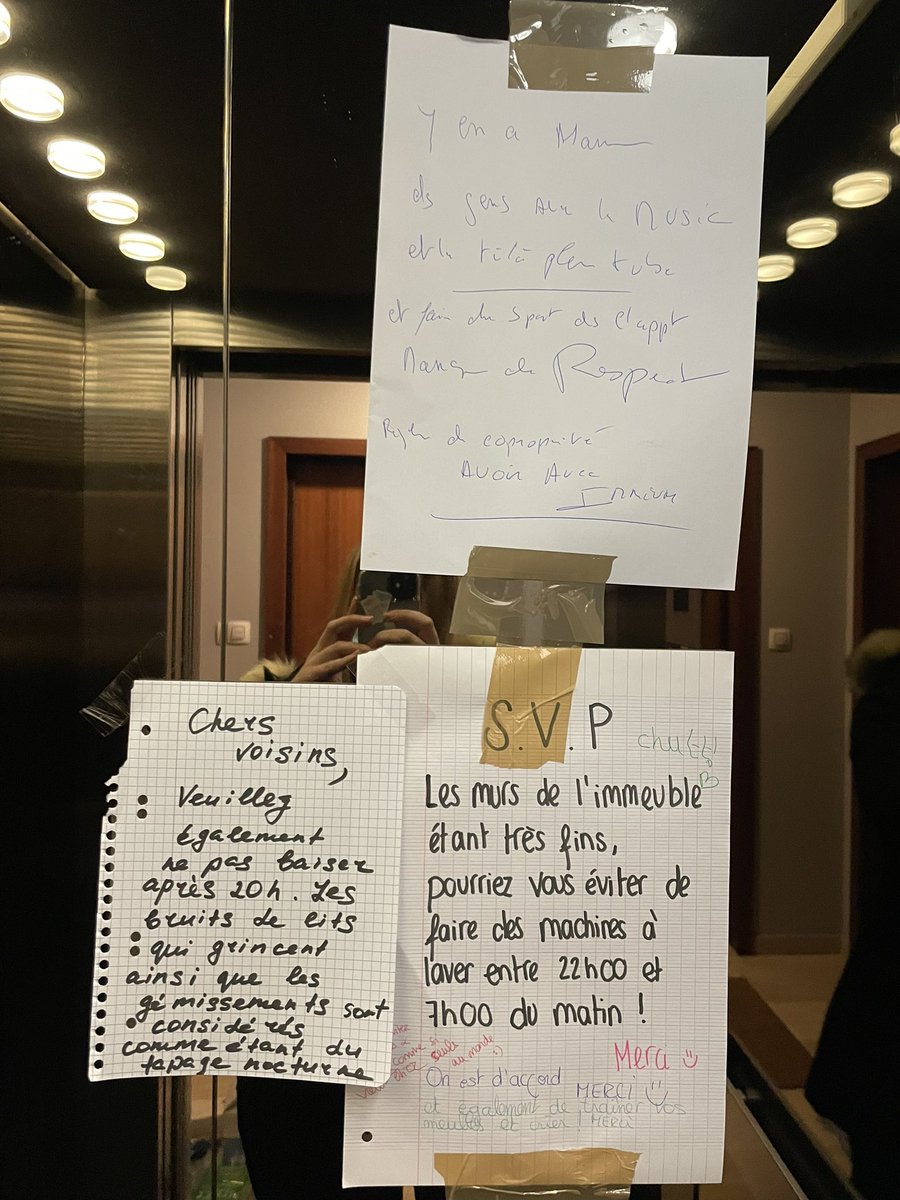 Y en a Marre
ds gens avec la Music
et la télé plein tube
et faire du sport ds l'appt
Manque de Respect
Règle de copropriété
Avoir Avec
Chers
voisins,
Veuillez
également
ne pas baiser
après 20h. Les
bruits de lits
qui grincent
ainsi que les
gémissements sont
considérés
comme étant du
tapage nocturne
S.V.P
chuttt!
Les murs de l'immeuble
étant très fins,
pourriez vous éviter de
faire des machines à
laver entre 22h00 et
7h00 du matin !
Merci
comme si
seuls
au monde :)
On est d'accord MERCI
et également de traîner vos
meubles et crier ! MERCI